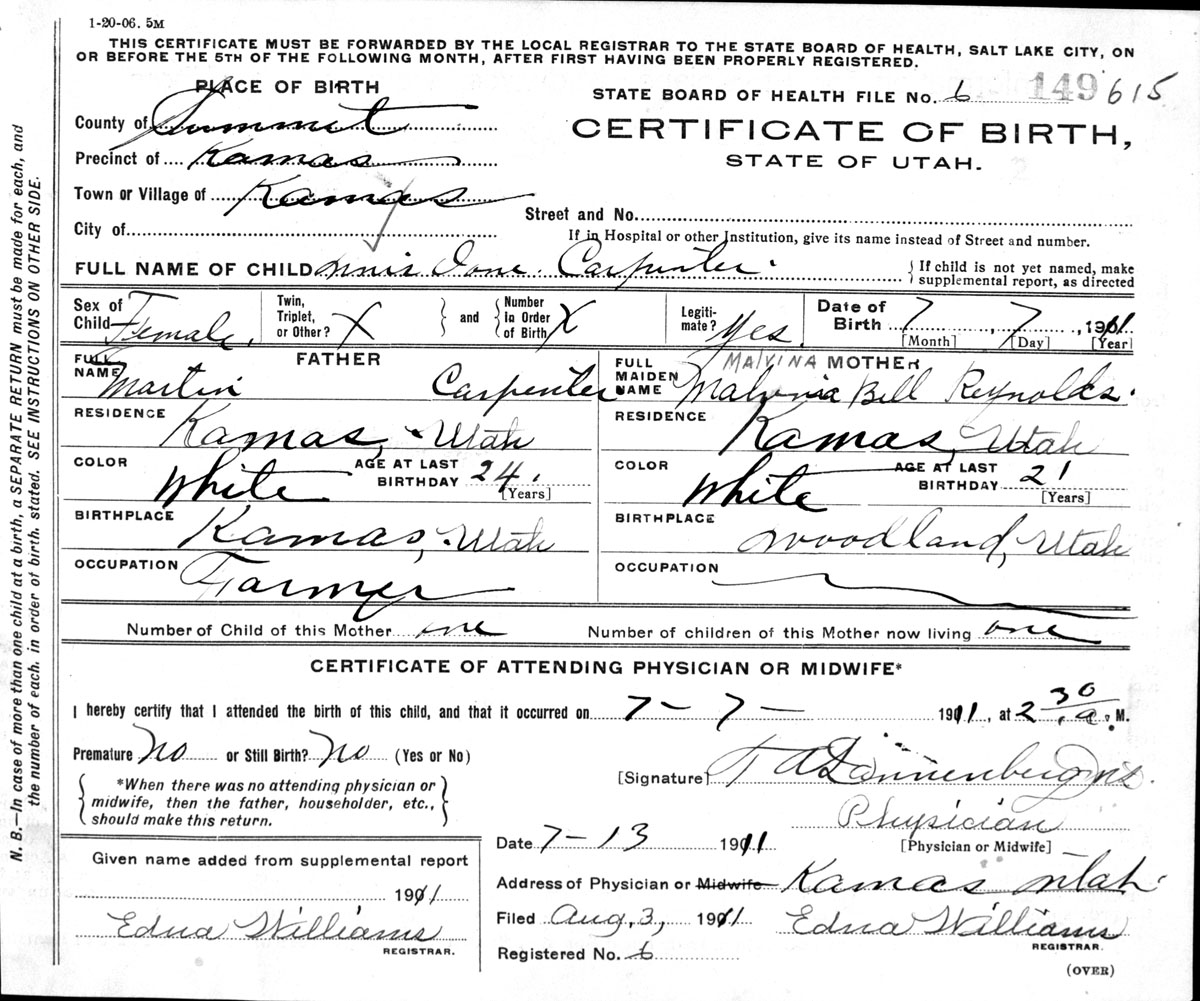 1-20-06. 5M
THIS CERTIFICATE MUST BE FORWARDED BY THE LOCAL REGISTRAR TO THE STATE BOARD OF HEALTH, SALT LAKE CITY, ON
OR BEFORE THE 5TH OF THE FOLLOWING MONTH, AFTER FIRST HAVING BEEN PROPERLY REGISTERED.
PLACE OF BIRTH
STATE BOARD OF HEALTH FILE No. 6 149 615
County of Summit
CERTIFICATE OF BIRTH,
Precinct of Kamas
STATE OF UTAH.
Town or Village of Kamas
Street and No.
City of
If in Hospital or other Institution, give its name instead of Street and number.
FULL NAME OF CHILD Ione Carpenter { If child is not yet named, make
supplemental report, as directed
Sex of Child Female. Twin, Triplet, or Other? X } and { Number In Order of Birth X Legitimate? Yes. Date of Birth 7, 7, 1911
[Month] [Day] [Year]
FATHER
MALVINA MOTHER
FULL NAME Martin Carpenter
FULL MAIDEN NAME Malvina Bell Reynolds.
RESIDENCE Kamas, Utah
RESIDENCE Kamas, Utah
COLOR White AGE AT LAST BIRTHDAY 24. [Years]
COLOR White AGE AT LAST BIRTHDAY 21 [Years]
BIRTHPLACE Kamas, Utah
BIRTHPLACE Woodland, Utah
OCCUPATION Farmer
OCCUPATION
Number of Child of this Mother one Number of children of this Mother now living one
CERTIFICATE OF ATTENDING PHYSICIAN OR MIDWIFE*
I hereby certify that I attended the birth of this child, and that it occurred on 7-7- 1911, at 2 30 a. M.
Premature No or Still Birth? No (Yes or No)
[Signature] Dannenberg
*When there was no attending physician or
midwife, then the father, householder, etc.,
should make this return.
Physician
[Physician or Midwife]
Date 7-13 1911
Given name added from supplemental report
Address of Physician or Midwife Kamas Utah.
1911
Filed Aug, 3, 1911 Edna Williams
REGISTRAR.
Edna Williams
REGISTRAR.
Registered No. 6
(OVER)
N. B.—In case of more than one child at a birth, a SEPARATE RETURN must be made for each, and
the number of each. in order of birth. stated. SEE INSTRUCTIONS ON OTHER SIDE.